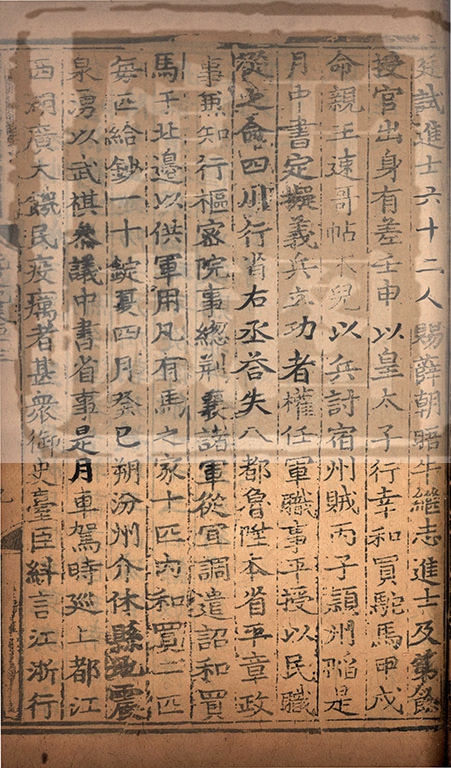 廷試進士六十二人賜薛朝晤牛繼志進士及第餘
授官出身有差壬申以皇太子行幸和買駝馬甲戌
命親王速哥帖木兒以兵討宿州賊丙子潁州陷是
月中書定擬義兵立功者權任軍職事平授以民職
從之命四川行省右丞荅失八都魯陞本省平章政
事兼知行樞密院事緫荊襄諸軍從宜調遣詔和買
馬于北邊以供軍用凡有馬之家十匹內和買二匹
每匹給鈔一十錠夏四月癸巳朔汾州介休縣地震
泉湧以武祺叅議中書省事是月車駕時巡上都江
西湖廣大饑民疫癘者甚衆御史臺臣糾言江浙行